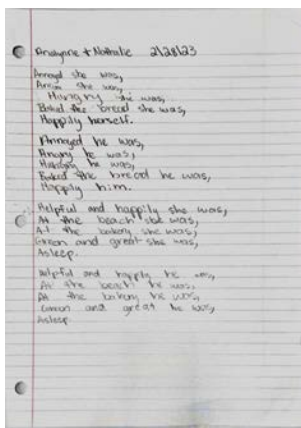 Analynne + Nathalie 2/28/23
Annoyed she was,
she was,
Hungry she was,
Baked the bread she was,
Happily herself.
Annoyed he was,
Angry he was,
Hungry he was,
Baked the bread he was,
Happily him.
Helpful and happily she was,
At the beach she was,
At the bakery she was,
Green and great she was,
Asleep.
Helpful and happily he was,
At the beach he was,
At the bakery he was,
Green and great he was,
Asleep.